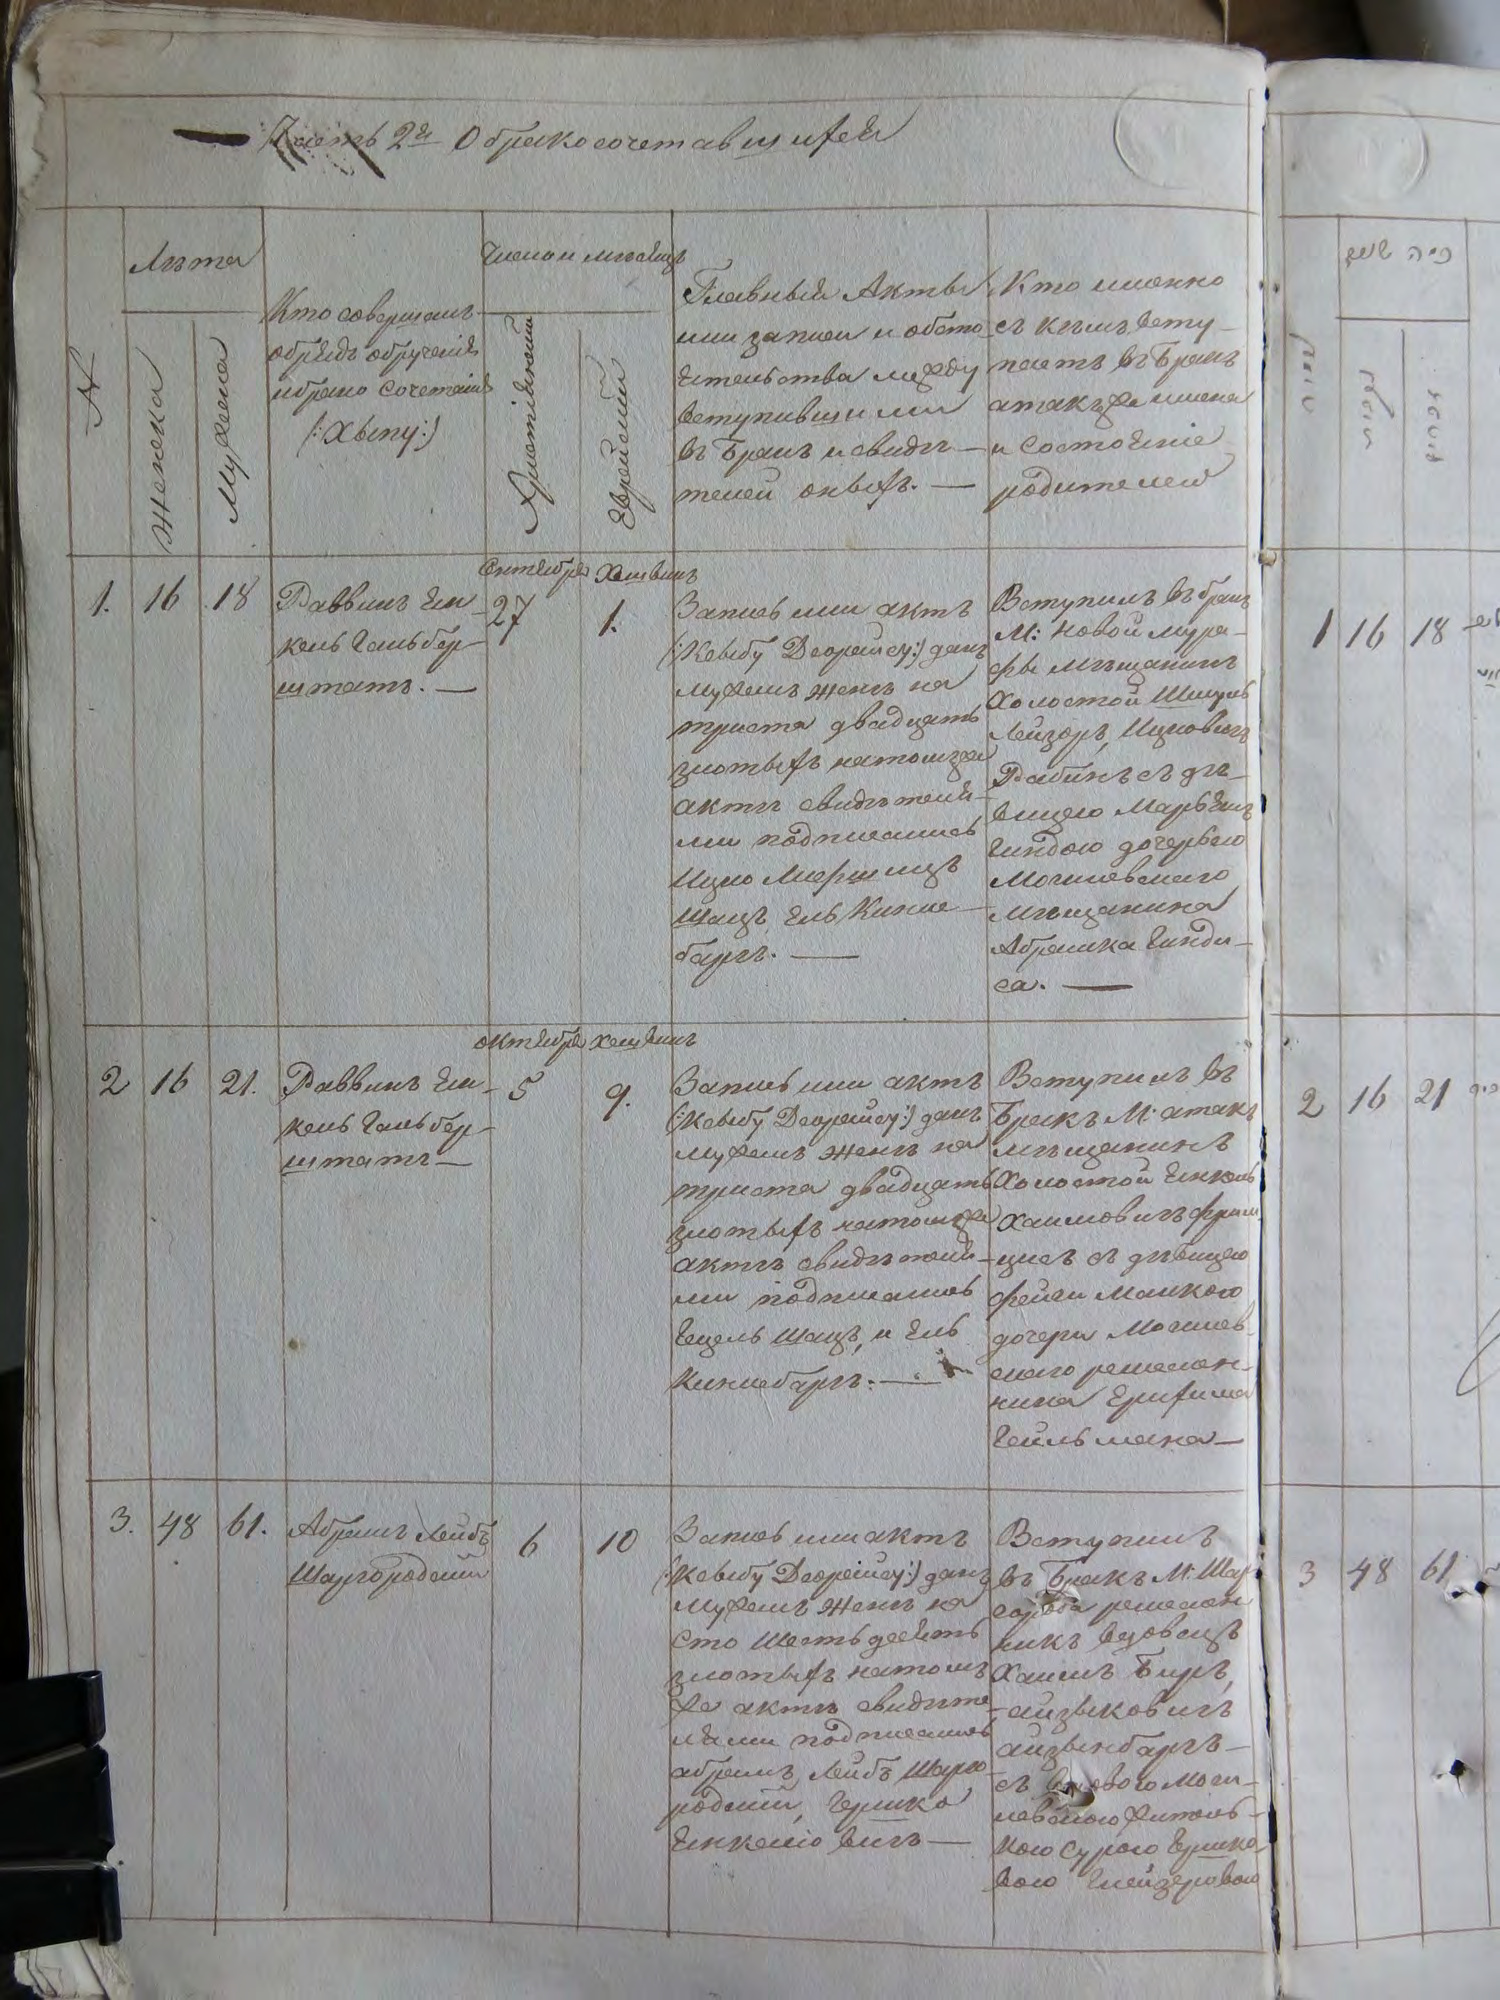 Часть 2я О бракосочетавшихся
№
Лѣта
Женска
Мужеска
Кто совершалъ
обрядъ обрученія
и брако сочетанія
(:Хыпу:)
Число и мѣсяцъ
Христіянскій
Еврейскій
Главный Актъ
или записи и обсто
ятельства между
вступившими
въ бракъ и свидѣ—
телей оныхъ. —
Кто именно
съ кѣмъ всту—
паетъ въ бракъ
а такъже имена
и состояніе
родителей
1.
16
18
Раввинъ Ян—
кель Гальбер—
штатъ. —
Сентября
27
Хешвинъ
1.
Запись или актъ
(:Ксыбу Деорейсу:) данъ
мужемъ женѣ на
триста двадцать
злотыхъ на томъ же
актѣ свидѣтеля—
ми подписались
Ицко
Шацъ, Ель Киние—
баргъ. —
Вступилъ въ бракъ
М: Новой Мура—
фы мѣщанинъ
холостой Шмуль
Лейзоръ, Ицковичъ
Рабинъ съ дѣ—
вицею Марьямъ
Гиндою дочерью
Могилевского
мѣщанина
Абрамка Гинди—
са. —
2
16
21.
Раввинъ Ян—
кель Гальбер—
штатъ —
октября
5
Хешвинъ
9.
Запись или актъ
(:Ксыбу Деорейсу:) данъ
мужемъ женѣ на
триста двадцать
злотыхъ на томъ же
актѣ свидѣтеля—
ми подписались
Гецель Шацъ, и Ель
Киниебаргъ. —
Вступилъ въ
бракъ М: атакъ
мѣщанинъ
холостой Янкель
Хаимовичъ
съ дѣвицею
Фейги Малкою
дочери Могилев—
скаго ремеслен—
ника Ерухима
Гейльмана —
3.
48
61.
Абрамъ Лейбъ
Шаргородскій
6
10
Запись или актъ
(:Ксыбу Деорейсу:) данъ
мужемъ женѣ на
сто шестьдесятъ
злотыхъ на томъ
же актѣ свидѣте
лями подписались
абрамъ, Лейбъ Шарго—
родскій, Гершко
Янкеліовичъ —
Вступилъ
въ бракъ М: Шар
города ремеслен
никъ вдовецъ
Хаимъ Беръ,
айзыковичъ
айзынбаргъ —
съ вдовою Моги—
левскою житель—
кою Сурою Гершко—
вою Глейзеровою
1
16
18
2
16
21
3
48
61